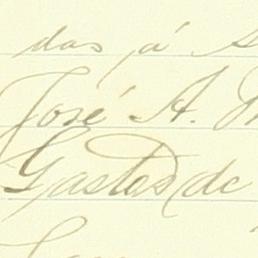 das já
José A.
Gastos de